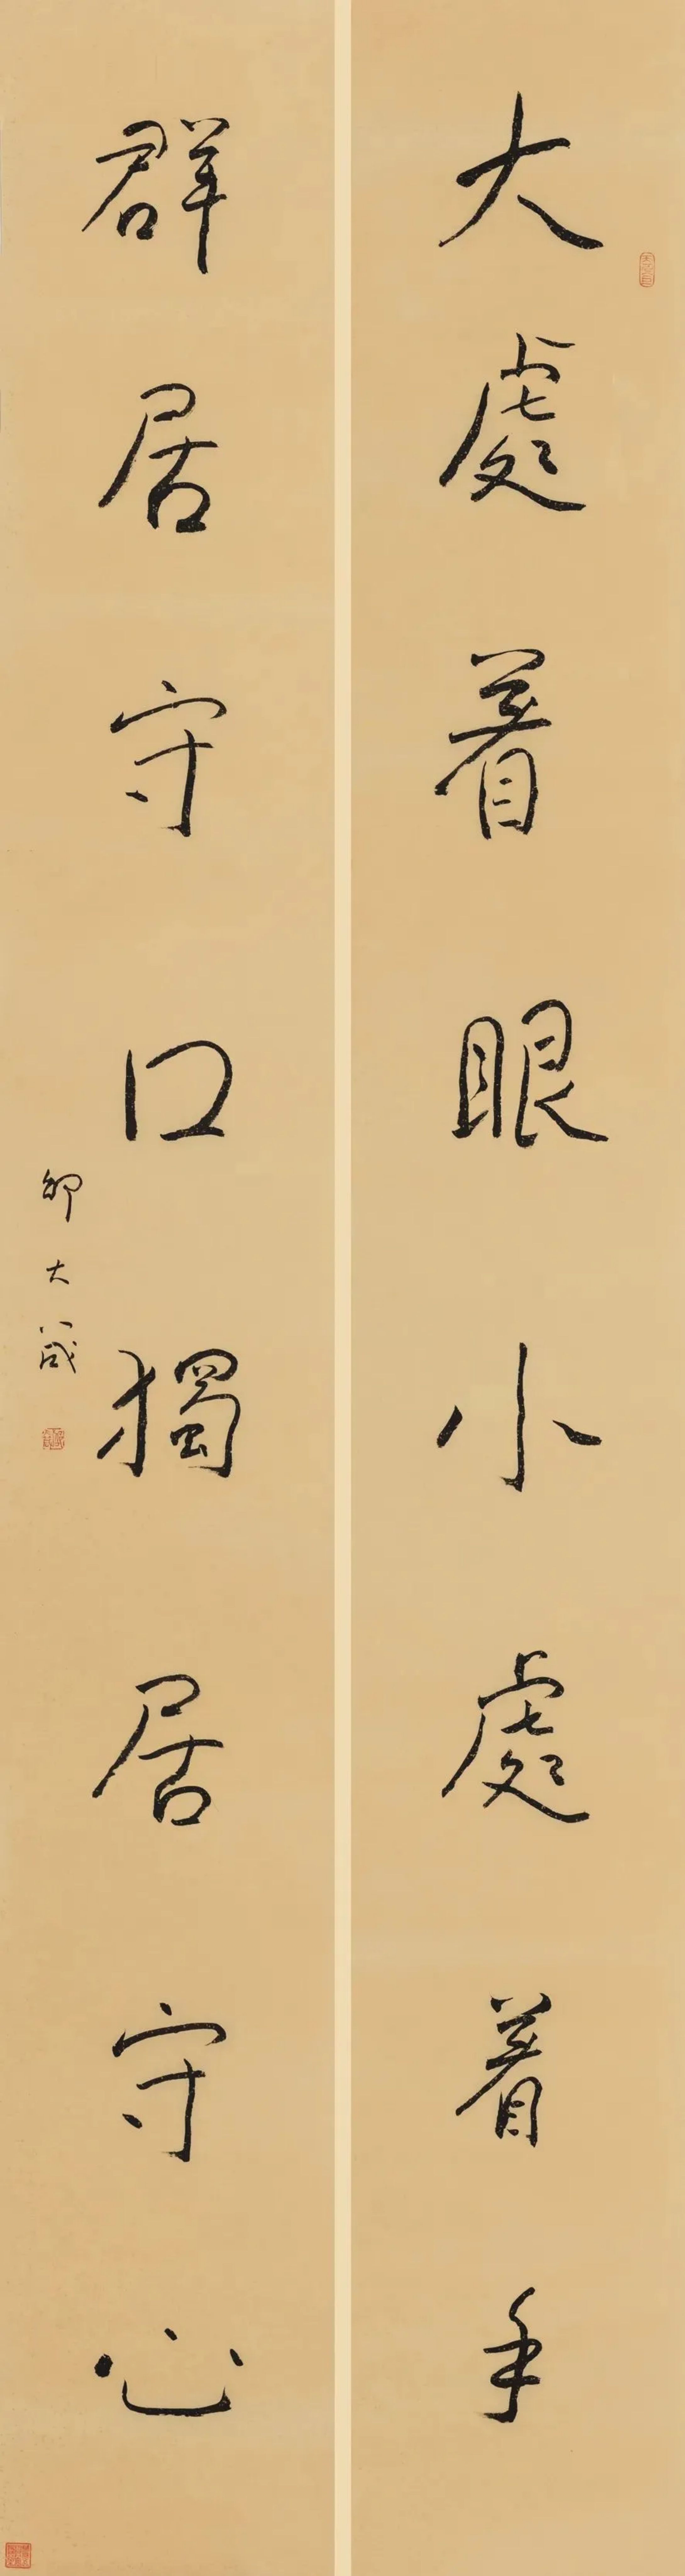 大處着眼小處着手
群居守口獨居守心
邮大箴